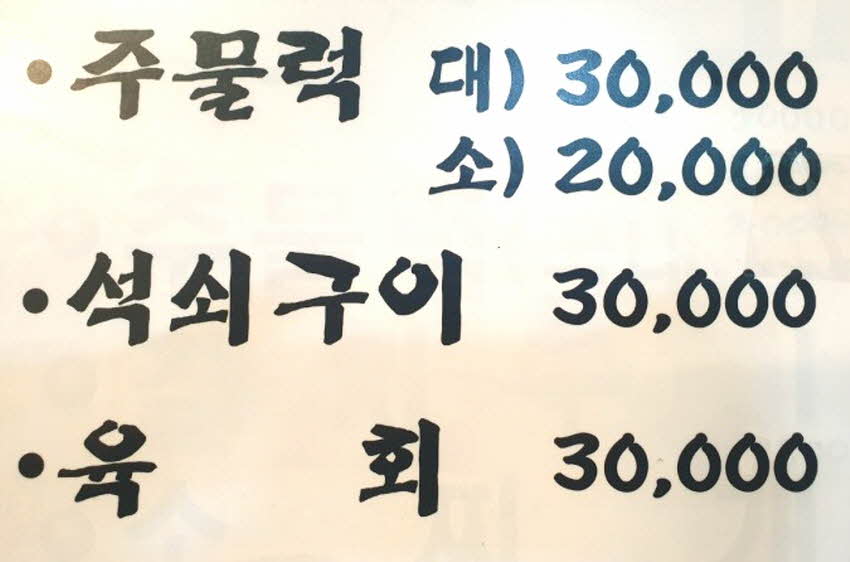 • 주물럭 대) 30,000
소) 20,000
• 석쇠구이 30,000
• 육 회 30,000